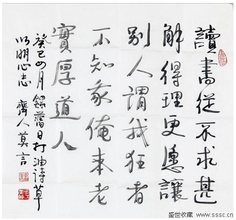 讀書從不求甚
解得理更應讓
別人謂我狂者
不知我俺本老
實厚道人
癸巳四月錄舊日打油詩草
以明心志 齊人莫言
盛世收藏 www.sssc.cn